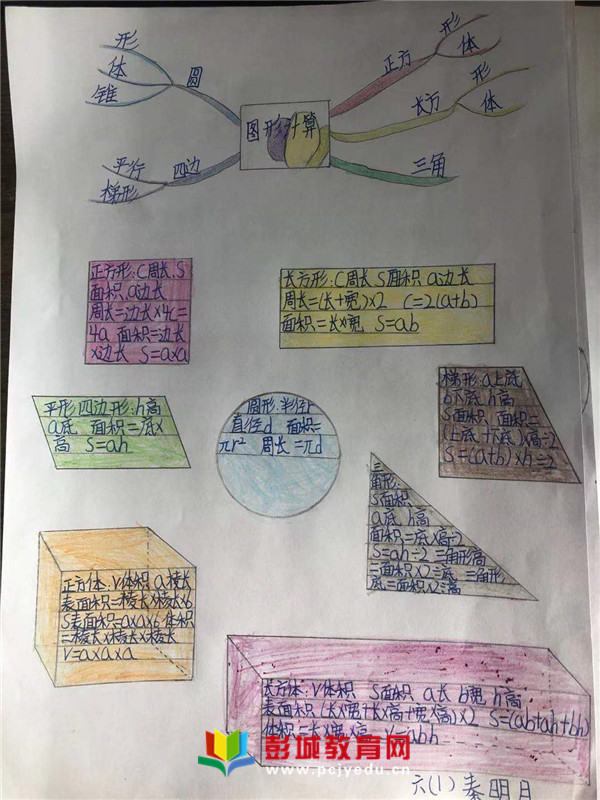 形
体
锥
圆
平行
梯形
四边
图形计算
正方
形
体
长方
形
体
三角
正方形:C周长 S
面积 a边长
周长=边长×4 C=
4a 面积=边长
×边长 S=a×a
长方形:C周长 S面积 a边长
周长=(长+宽)×2 C=2(a+b)
面积=长×宽 S=ab
平形四边形:h高
a底 面积=底×
高 S=ah
圆形:半径r
直径d 面积=
πr² 周长=πd
梯形:a上底
b下底 h高
S面积 面积=
(上底+下底)×高÷2
S=(a+b)×h÷2
三
角形:
S面积
a底 h高
面积=底×高÷2
S=ah÷2 三角形高
=面积×2÷底 三角形
底=面积×2÷高
正方体:V体积 a棱长
表面积=棱长×棱长×6
S表面积=a×a×6 体积
=棱长×棱长×棱长
V=a×a×a
长方体:V体积 S面积 a长 b宽 h高
表面积(长×宽+长×高+宽×高)×2 S=(ab+ah+bh)
体积=长×宽×高 V=abh
彭城教育网
www.pcjyedu.cn
六(1) 秦明日